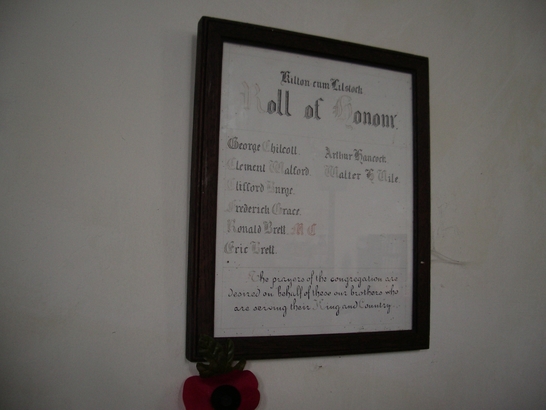 Kilton cum Lilstock
Roll of Honour.
George Chilcott.
Clement Walford.
Clifford Burge.
Frederick Grace.
Ronald Brett. M C
Eric Brett.
Arthur Hancock
Walter H
The prayers of the congregation are
desired on behalf of these our brothers who
are serving their King and Country